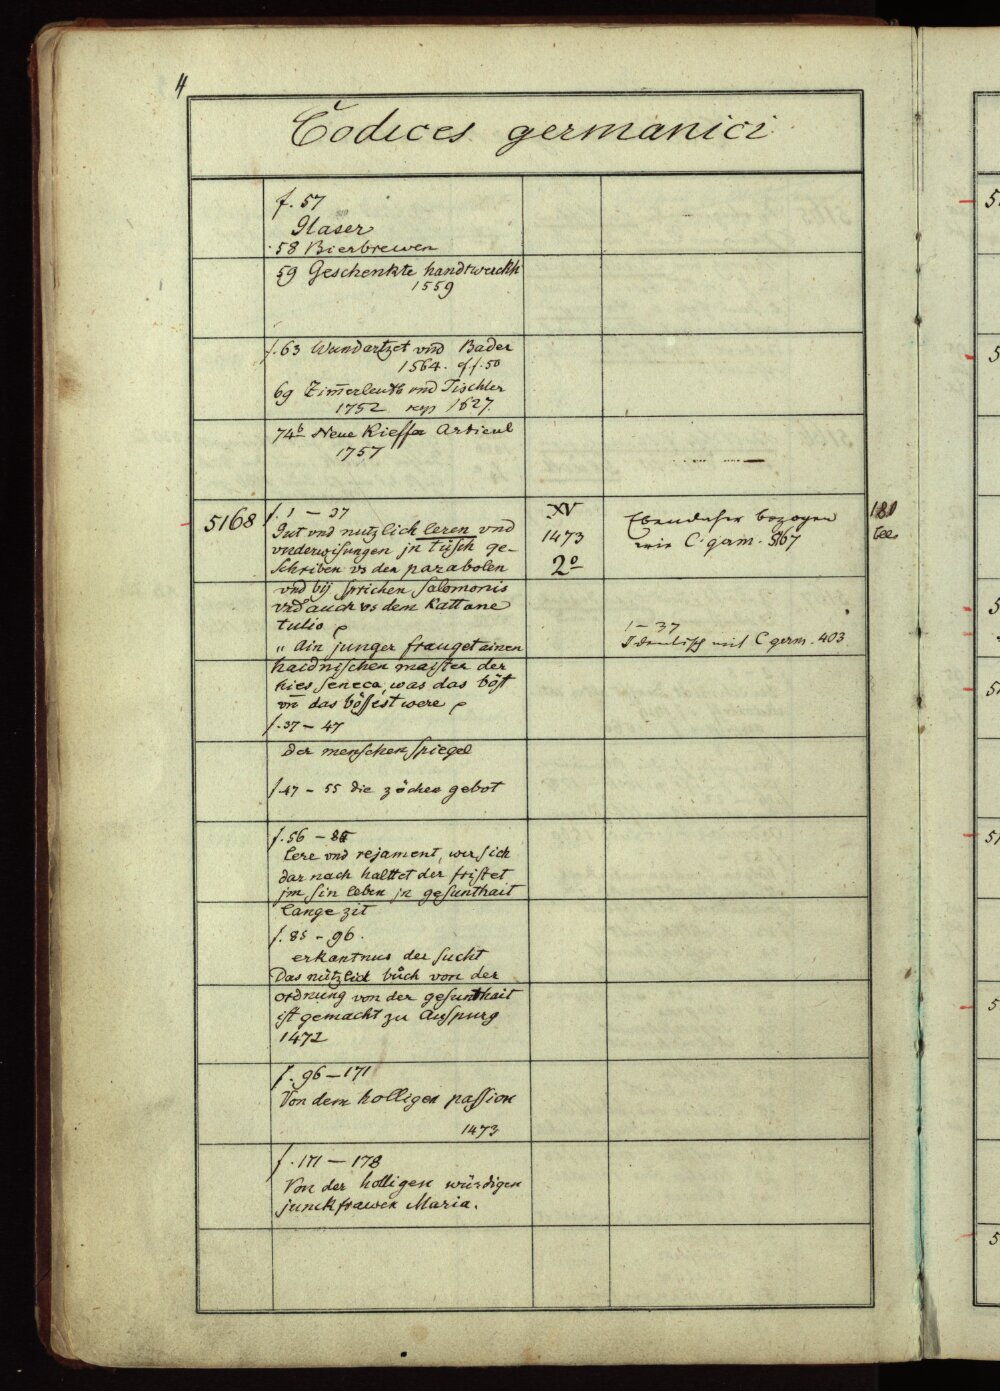 4
Codices germanici
f. 57
Glaser
58 Bierbrewen
59 Geschenkte handtwerckh
1559
f. 63 Wundartzet vnd Bader
1564. cf f. 50
69 Zim̄erleuth vnd Tischler
1752 1627.
74b Neue Kieffer Articul
1757
5168
f. 1 — 37
Gut vnd nutzlich leren vnd
vnderwisungen jn tüsch ge-
schriben vs den parabolen
vnd bij sprichen Salomonis
vnd auch vs dem Kattone
tulio
„ Ain junger frauget ainen
haidnischen maister der
hies Seneca, was das böst
vn̄ das bössest were
f. 37 — 47
der menschen spiegel
f. 47 — 55 die zöchen gebot
f. 56 — 85
lere vnd rejament, wer sich
dar nach halttet der fristet
jm sin leben jn gesunthait
lange zit
f. 85 - 96.
erkantnus der sucht
Das nützlich bůch von der
ordnung von der gesunthait
ist gemacht zu Auspurg
1472
f. 96 — 171
Von dem holligen passion
1473
f. 171 — 178
Von der holligen würdigen
junckfrawen Maria.
XV
1473
2o
Ebendaher bezogen
wie C. germ. 5167
1 — 37
Identisch mit C germ. 403
181
5
5
5
51
51
5
5